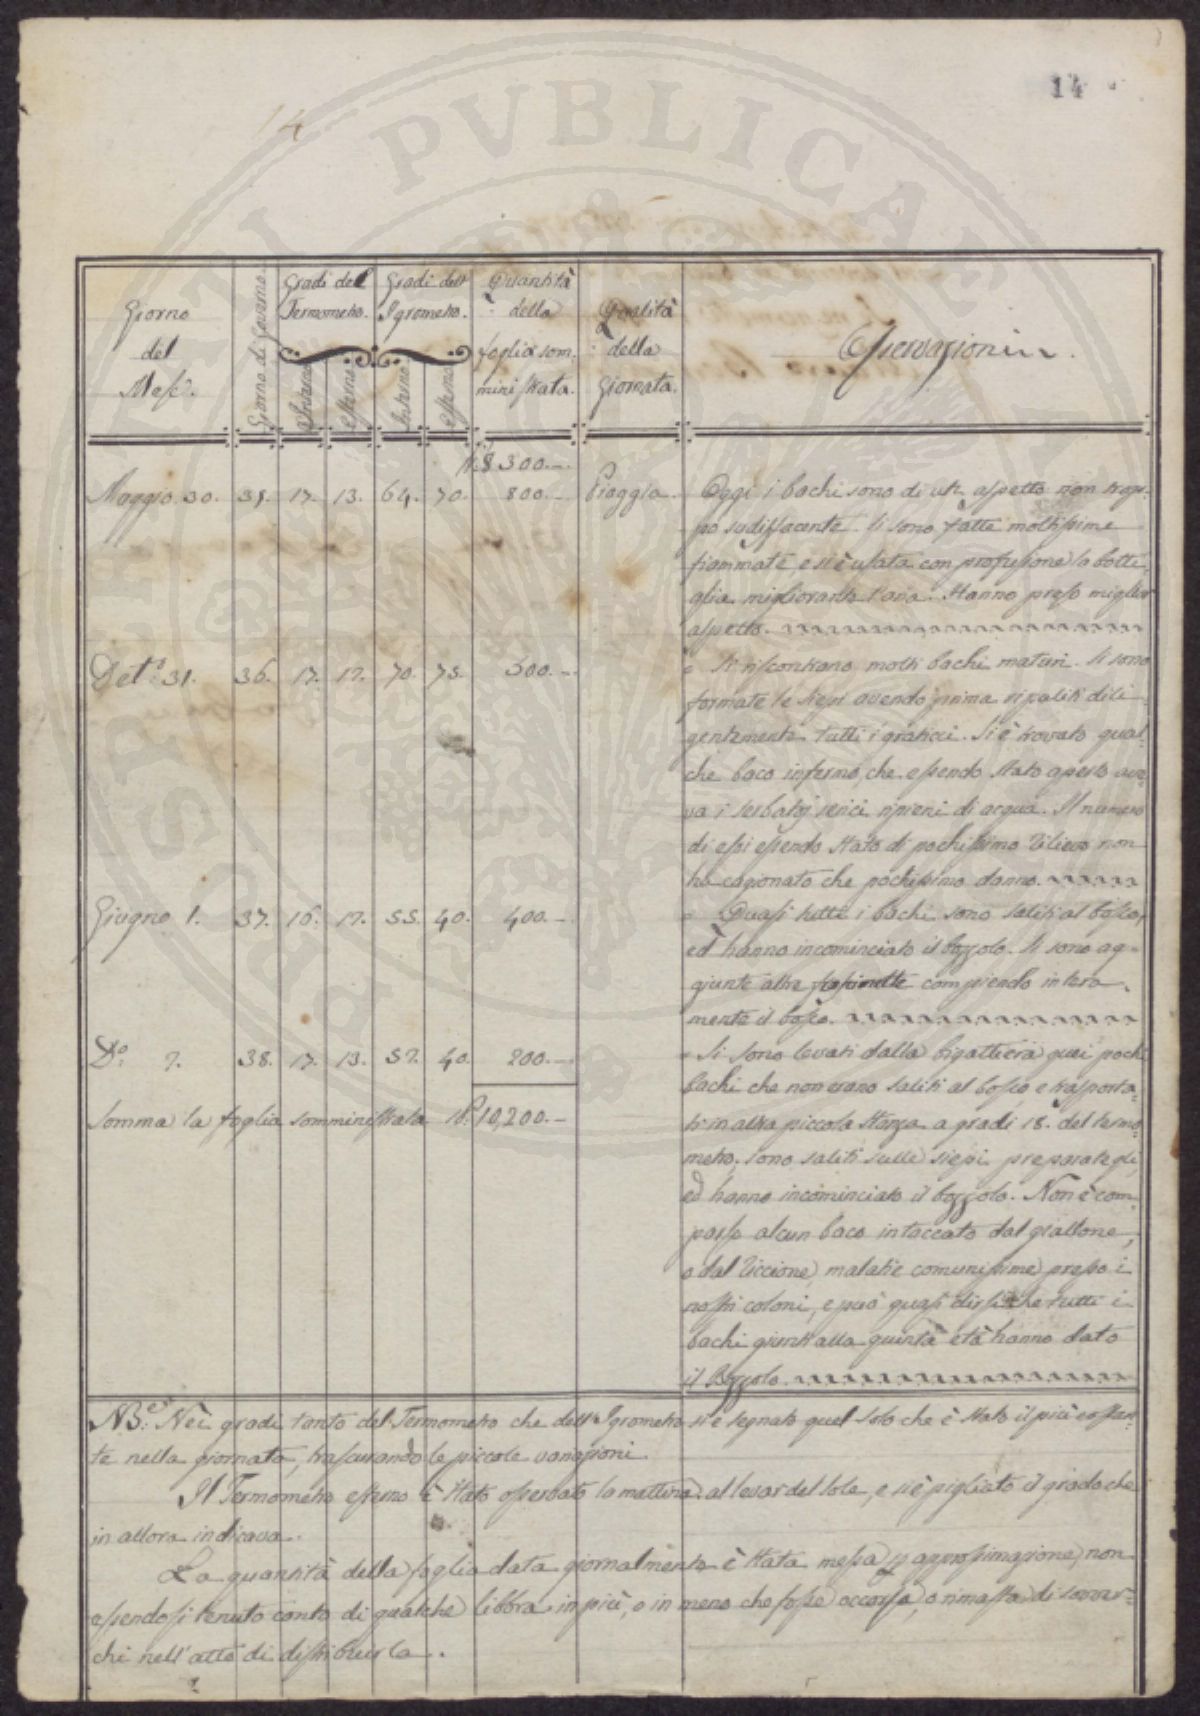 14
14
Giorno del Mese.
Giorno di Governo
Gradi del Termometro.
Interno
Esterno
Gradi dell' Igrometro.
Interno
Esterno
Quantità della foglia som= ministrata.
Qualità della Giornata.
Osservazioni
8300.-
Maggio 30. 35. 17. 13. 64. 70. 800.- Pioggia.
Oggi i bachi sono di un aspetto non trop=
po sodisfacente. Si sono fatte moltissime
fiammate, e si è usata con profusione la botti=
glia migliorante l'aria. Hanno preso miglior
aspetto.
Det.º 31. 36. 17. 12. 70. 75. 500.-
Si riscontrano molti bachi maturi. Si sono
formate le siepi avendo prima ripuliti dili=
gentemente tutti i graticci. Si è trovato qual=
che baco infermo, che essendo stato aperto ave=
va i serbatoj serici ripieni di acqua. Il numero
di essi essendo stato di pochissimo rilievo non
ha cagionato che pochissimo danno.
Giugno 1. 37. 16. 12. 55. 40. 400.-
Quasi tutti i bachi sono saliti al bosco,
ed hanno incominciato il bozzolo. Si sono ag=
giunte altre fascinette compiendo intera=
mente il bosco.
D.º 2. 38. 17. 13. 52. 40. 200.-
Si sono levati dalla bigattiera quei pochi
bachi che non erano saliti al bosco e trasporta=
ti in altra piccola stanza a gradi 18. del termo=
metro; sono saliti sulle siepi preparategli,
ed hanno incominciato il bozzolo. Non è com=
parso alcun baco intaccato dal giallone,
o dal riccione, malatie comunissime presso i
nostri coloni, e può quasi dirsi che tutti i
bachi giunti alla quinta età hanno dato
il Bozzolo.
Somma la foglia somministrata 10,200.-
NB. Nei gradi tanto del Termometro che dell' Igrometro si è segnato quel solo che è stato il più costan=
te nella giornata, trascurando le piccole variazioni.
Il Termometro esterno è stato osservato la mattina al levar del Sole, e si è pigliato il grado che
in allora indicava.
La quantità della foglia data giornalmente è stata messa approssimazione, non
essendosi tenuto conto di qualche libbra in più, o in meno che fosse occorsa, o rimasta di sover=
chi nell' atto di distribuirla.